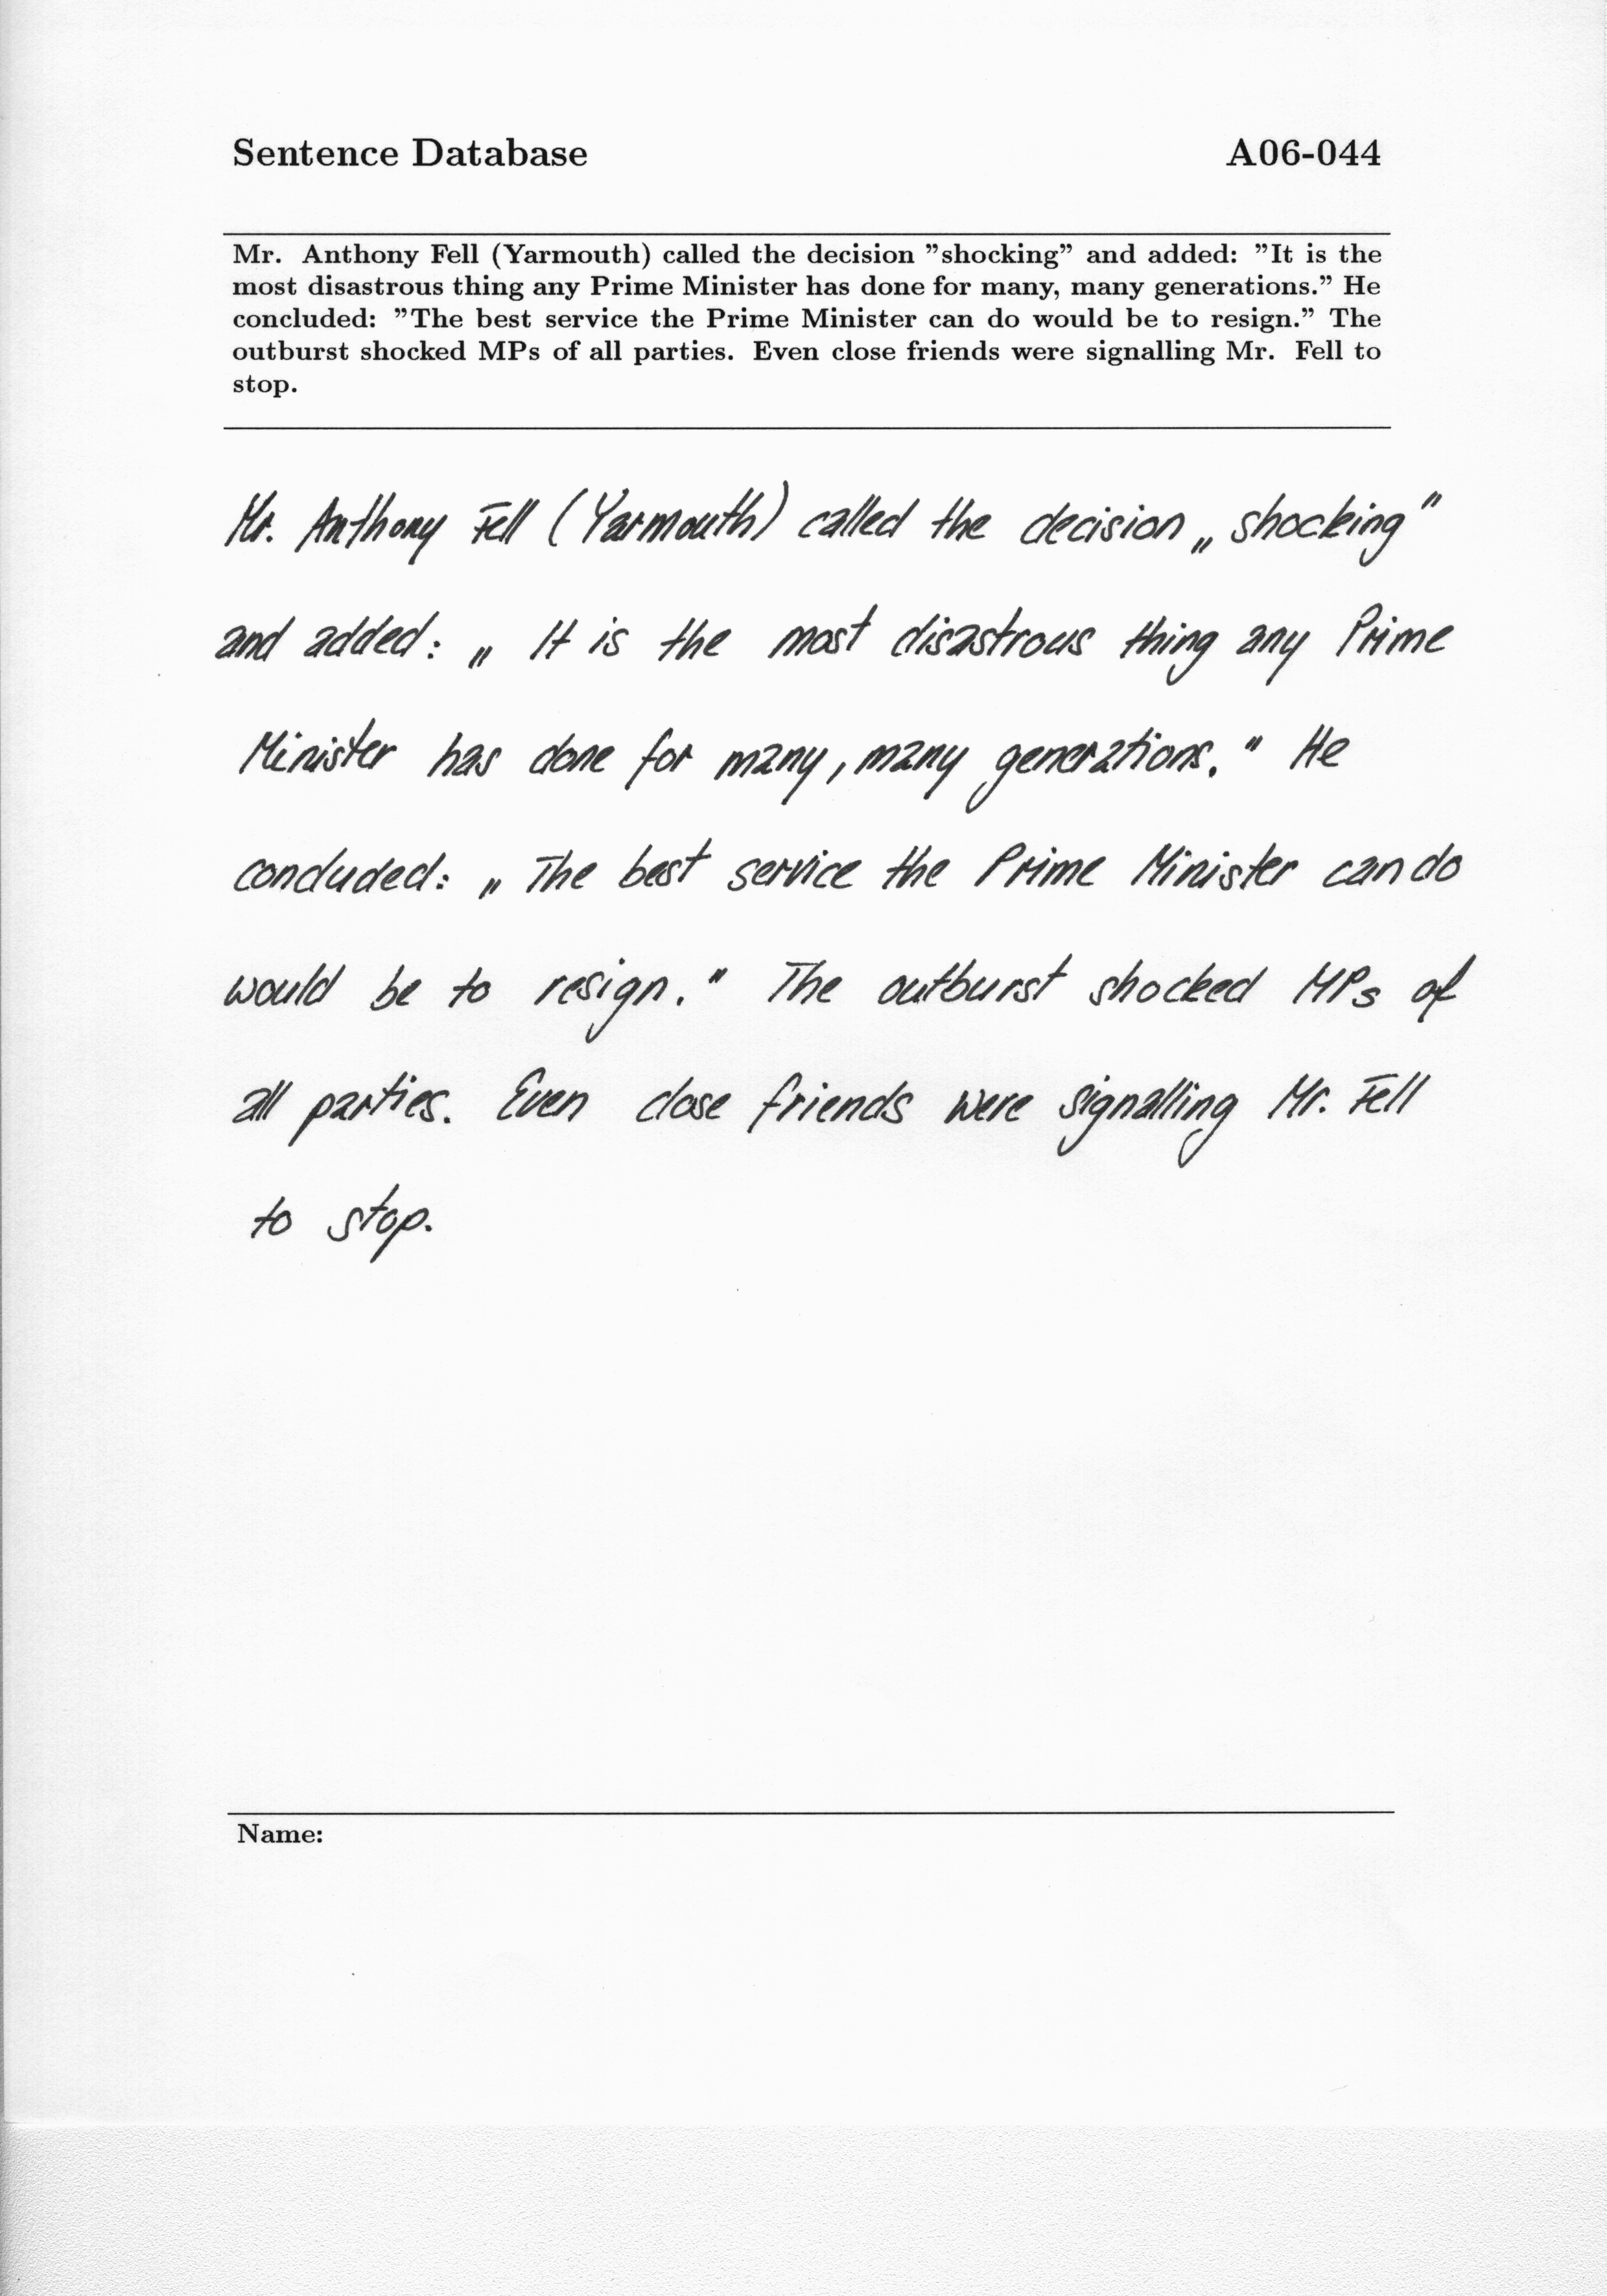 Sentence Database A06-044
Mr. Anthony Fell (Yarmouth) called the decision ”shocking” and added: ”It is the
most disastrous thing any Prime Minister has done for many, many generations.” He
concluded: ”The best service the Prime Minister can do would be to resign.” The
outburst shocked MPs of all parties. Even close friends were signalling Mr. Fell to
stop.
Mr. Anthony Fell (Yarmouth) called the decision „ shocking"
and added: „ It is the most disastrous thing any Prime
Minister has done for many, many generations." He
concluded: „ The best service the Prime Minister can do
would be to resign." The outburst shocked MPs of
all parties. Even close friends were signalling Mr. Fell
to stop.
Name: